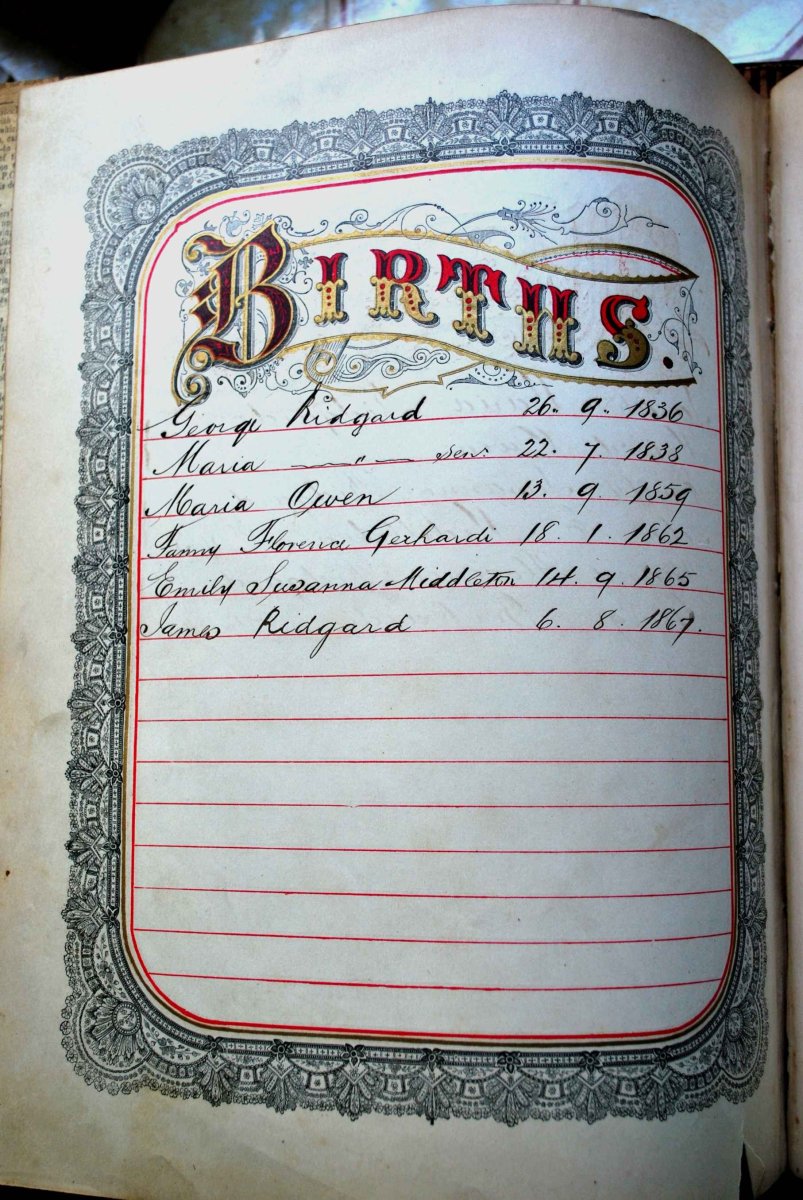 BIRTHS.
George Ridgard 26. 9. 1836
Maria —〃— Sen. 22. 7. 1838
Maria Owen 13. 9 1859
Fanny Florence Gerhardi 18. 1. 1862
Emily Susanna Middleton 14. 9. 1865
James Ridgard 6. 8. 1867.